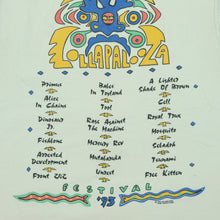 LOLLAPALOOZA
Primus
Alice
In Chains
Dinosaur
Jr.
Fishbone
Arrested
Development
Front 242
Babes
In Toyland
Tool
Rage Against
The Machine
Mercury Rev
Mutabaruka
Unrest
A Lighter
Shade Of Brown
Cell
Royal Trux
Mosquito
Sebadoh
Tsunami
Free Kitten
FESTIVAL
'93